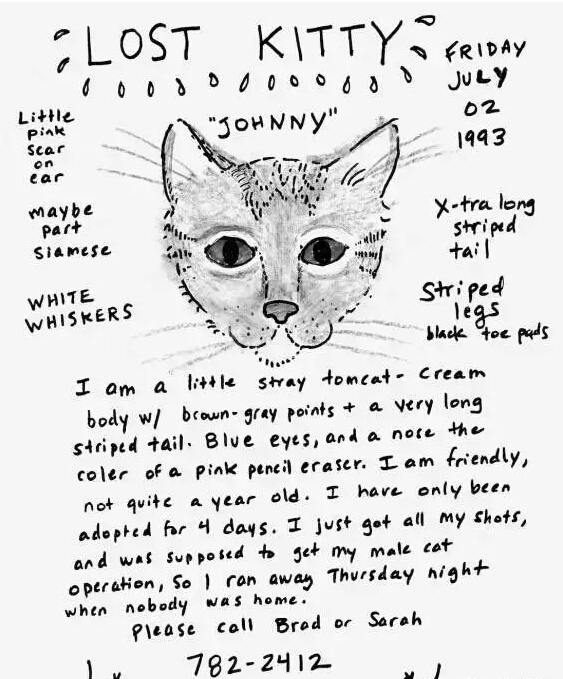 LOST KITTY
FRIDAY
JULY
02
1993
"JOHNNY"
Little
pink
scar
on
ear
maybe
part
siamese
WHITE
WHISKERS
X-tra long
striped
tail
Striped
legs
black toe pads
I am a little stray tomcat- cream
body w/ brown-gray points + a very long
striped tail. Blue eyes, and a nose the
coler of a pink pencil eraser. I am friendly,
not quite a year old. I have only been
adopted for 4 days. I just got all my shots,
and was supposed to get my male cat
operation, so I ran away Thursday night
when nobody was home.
Please call Brad or Sarah
782-2412